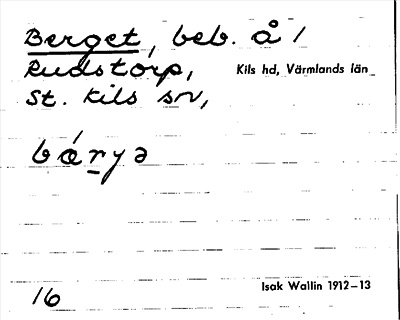 Berget, beb. å 1
Rudstorp, Kils hd, Värmlands län
St. Kils sn,
bárya
16 Isak Wallin 1912–13